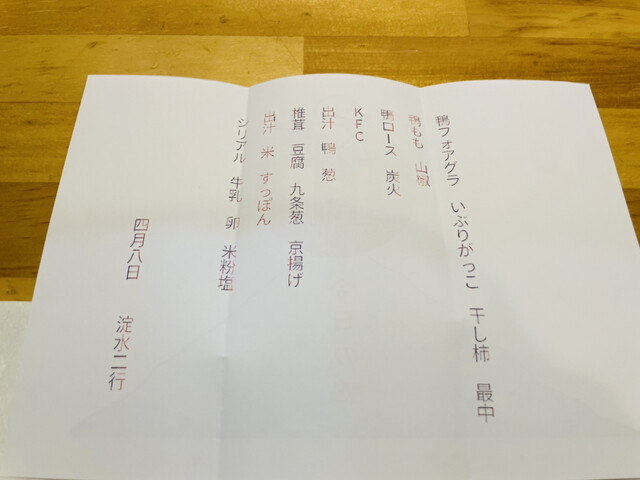 鴨フォアグラ　いぶりがっこ　干し柿　最中
鴨もも　山椒
鴨ロース　炭火
KFC
出汁　鴨　葱
椎茸　豆腐　九条葱　京揚げ
出汁　米　すっぽん
シリアル　牛乳　卵　米粉塩
四月八日　淀水二行